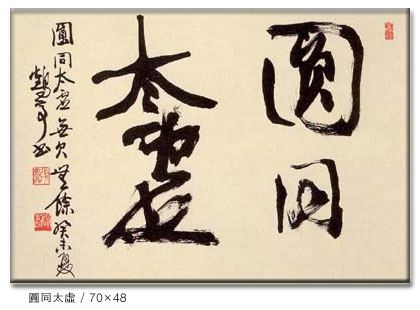 圓同
太虛
圓同太虛無欠無餘癸未夏
圓同太虛 / 70×48